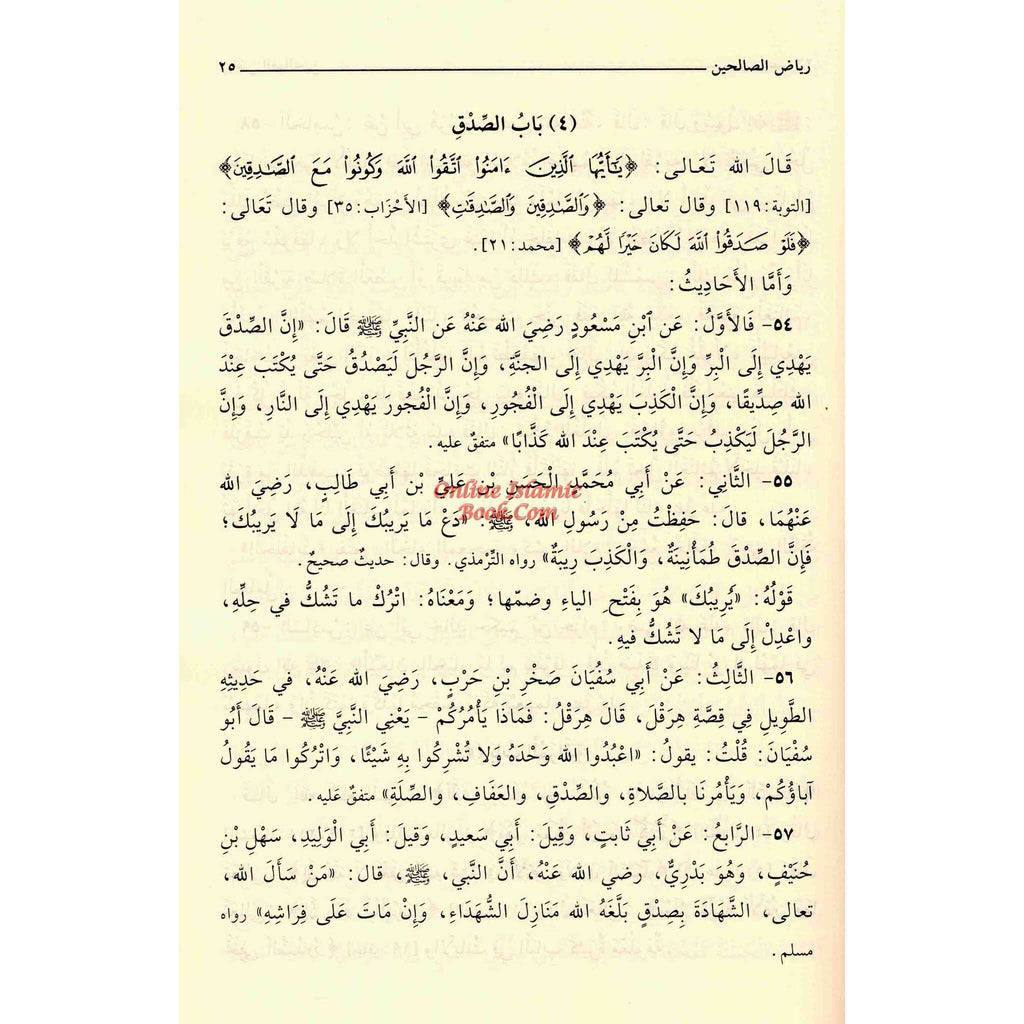 رياض الصالحين ٢٥
(٤) بَابُ الصِّدْقِ
قَالَ الله تَعَـالى: ﴿يَـٰٓأَيُّهَا ٱلَّذِينَ ءَامَنُوا۟ ٱتَّقُوا۟ ٱللَّهَ وَكُونُوا۟ مَعَ ٱلصَّـٰدِقِينَ﴾
[التوبة:١١٩] وقال تعالى: ﴿وَٱلصَّـٰدِقِينَ وَٱلصَّـٰدِقَـٰتِ﴾ [الأحْزاب:٣٥] وقال تَعَالى:
﴿فَلَوْ صَدَقُوا۟ ٱللَّهَ لَكَانَ خَيْرًا لَّهُمْ﴾ [محمد:٢١].
وَأَمَّا الأَحَادِيثُ:
٥٤- فَالأَوَّلُ: عَن ٱبْنِ مَسْعُودٍ رَضِيَ الله عَنْهُ عَن النَّبِيِّ ﷺ قَالَ: «إِنَّ الصِّدْقَ
يَهْدِي إِلَى الْبِرِّ وَإِنَّ الْبِرَّ يَهْدِي إِلَى الجنَّةِ، وَإِنَّ الرَّجُلَ لَيَصْدُقُ حَتَّى يُكْتَبَ عِنْدَ
الله صِدِّيقًا، وَإِنَّ الْكَذِبَ يَهْدِي إِلَى الْفُجُورِ، وَإِنَّ الْفُجُورَ يَهْدِي إِلَى النَّارِ، وَإِنَّ
الرَّجُلَ لَيَكْذِبُ حَتَّى يُكْتَبَ عِنْدَ الله كَذَّابًا» متفقٌ عليه.
٥٥- الثَّانِي: عَنْ أَبِي مُحَمَّدٍ الْحَسَنِ بْنِ عَلِيِّ بْنِ أَبِي طَالِبٍ، رَضِيَ الله
Online Islamic
Book.Com
عَنْهُمَا، قالَ: حَفِظْتُ مِنْ رَسُولِ الله، ﷺ: «دَعْ مَا يَرِيبُكَ إِلَى مَا لَا يَرِيبُكَ؛
فَإِنَّ الصِّدْقَ طُمَأْنِينَةٌ، وَالْكَذِبَ رِيبَةٌ» رواه التِّرْمذي. وقال: حديثٌ صحيحٌ.
قَوْلُهُ: «يُرِيبُكَ» هُوَ بِفَتْحِ الياءِ وضمّها؛ وَمَعْنَاهُ: اتْرُكْ ما تَشُكُّ في حِلِّهِ،
واعْدِلْ إِلَى مَا لا تَشُكُّ فيهِ.
٥٦- الثَّالِثُ: عَنْ أَبي سُفْيَانَ صَخْرِ بْنِ حَرْبٍ، رَضِيَ الله عَنْهُ، في حَدِيثِهِ
الطَّوِيلِ فِي قِصَّةِ هِرَقْلَ، قَالَ هِرَقْلُ: فَمَاذَا يَأْمُرُكُمْ - يَعْنِي النبيَّ ﷺ - قَالَ أَبُو
سُفْيَانَ: قُلْتُ: يقولُ: «اعْبُدُوا الله وَحْدَهُ وَلا تُشْرِكُوا بِهِ شَيْئًا، وَاتْرُكُوا مَا يَقُولُ
آباؤُكُمْ، وَيَأْمُرنَا بالصَّلاةِ، والصِّدْقِ، والعَفَافِ، والصِّلَةِ» متفقٌ عَليه.
٥٧- الرَّابعُ: عَنْ أَبي ثَابتٍ، وَقِيلَ: أَبي سَعيدٍ، وَقيلَ: أَبي الْوَلِيدِ، سَهْلِ بْنِ
حُنَيْفٍ، وَهُوَ بَدْرِيٌّ، رضي الله عَنْهُ، أَنَّ النَّبي، ﷺ، قال: «مَنْ سَأَلَ الله،
تعالى، الشَّهَادَةَ بِصِدْقٍ بَلَّغَهُ الله مَنَازِلَ الشُّهَدَاءِ، وَإِنْ مَاتَ عَلَى فِرَاشِهِ» رواه
مسلم.